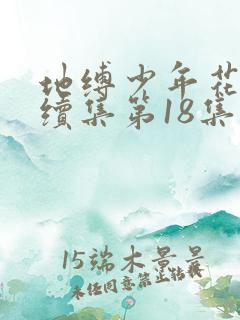 地缚少年花
续集第18集
15端木景晨
未任同意禁止转载